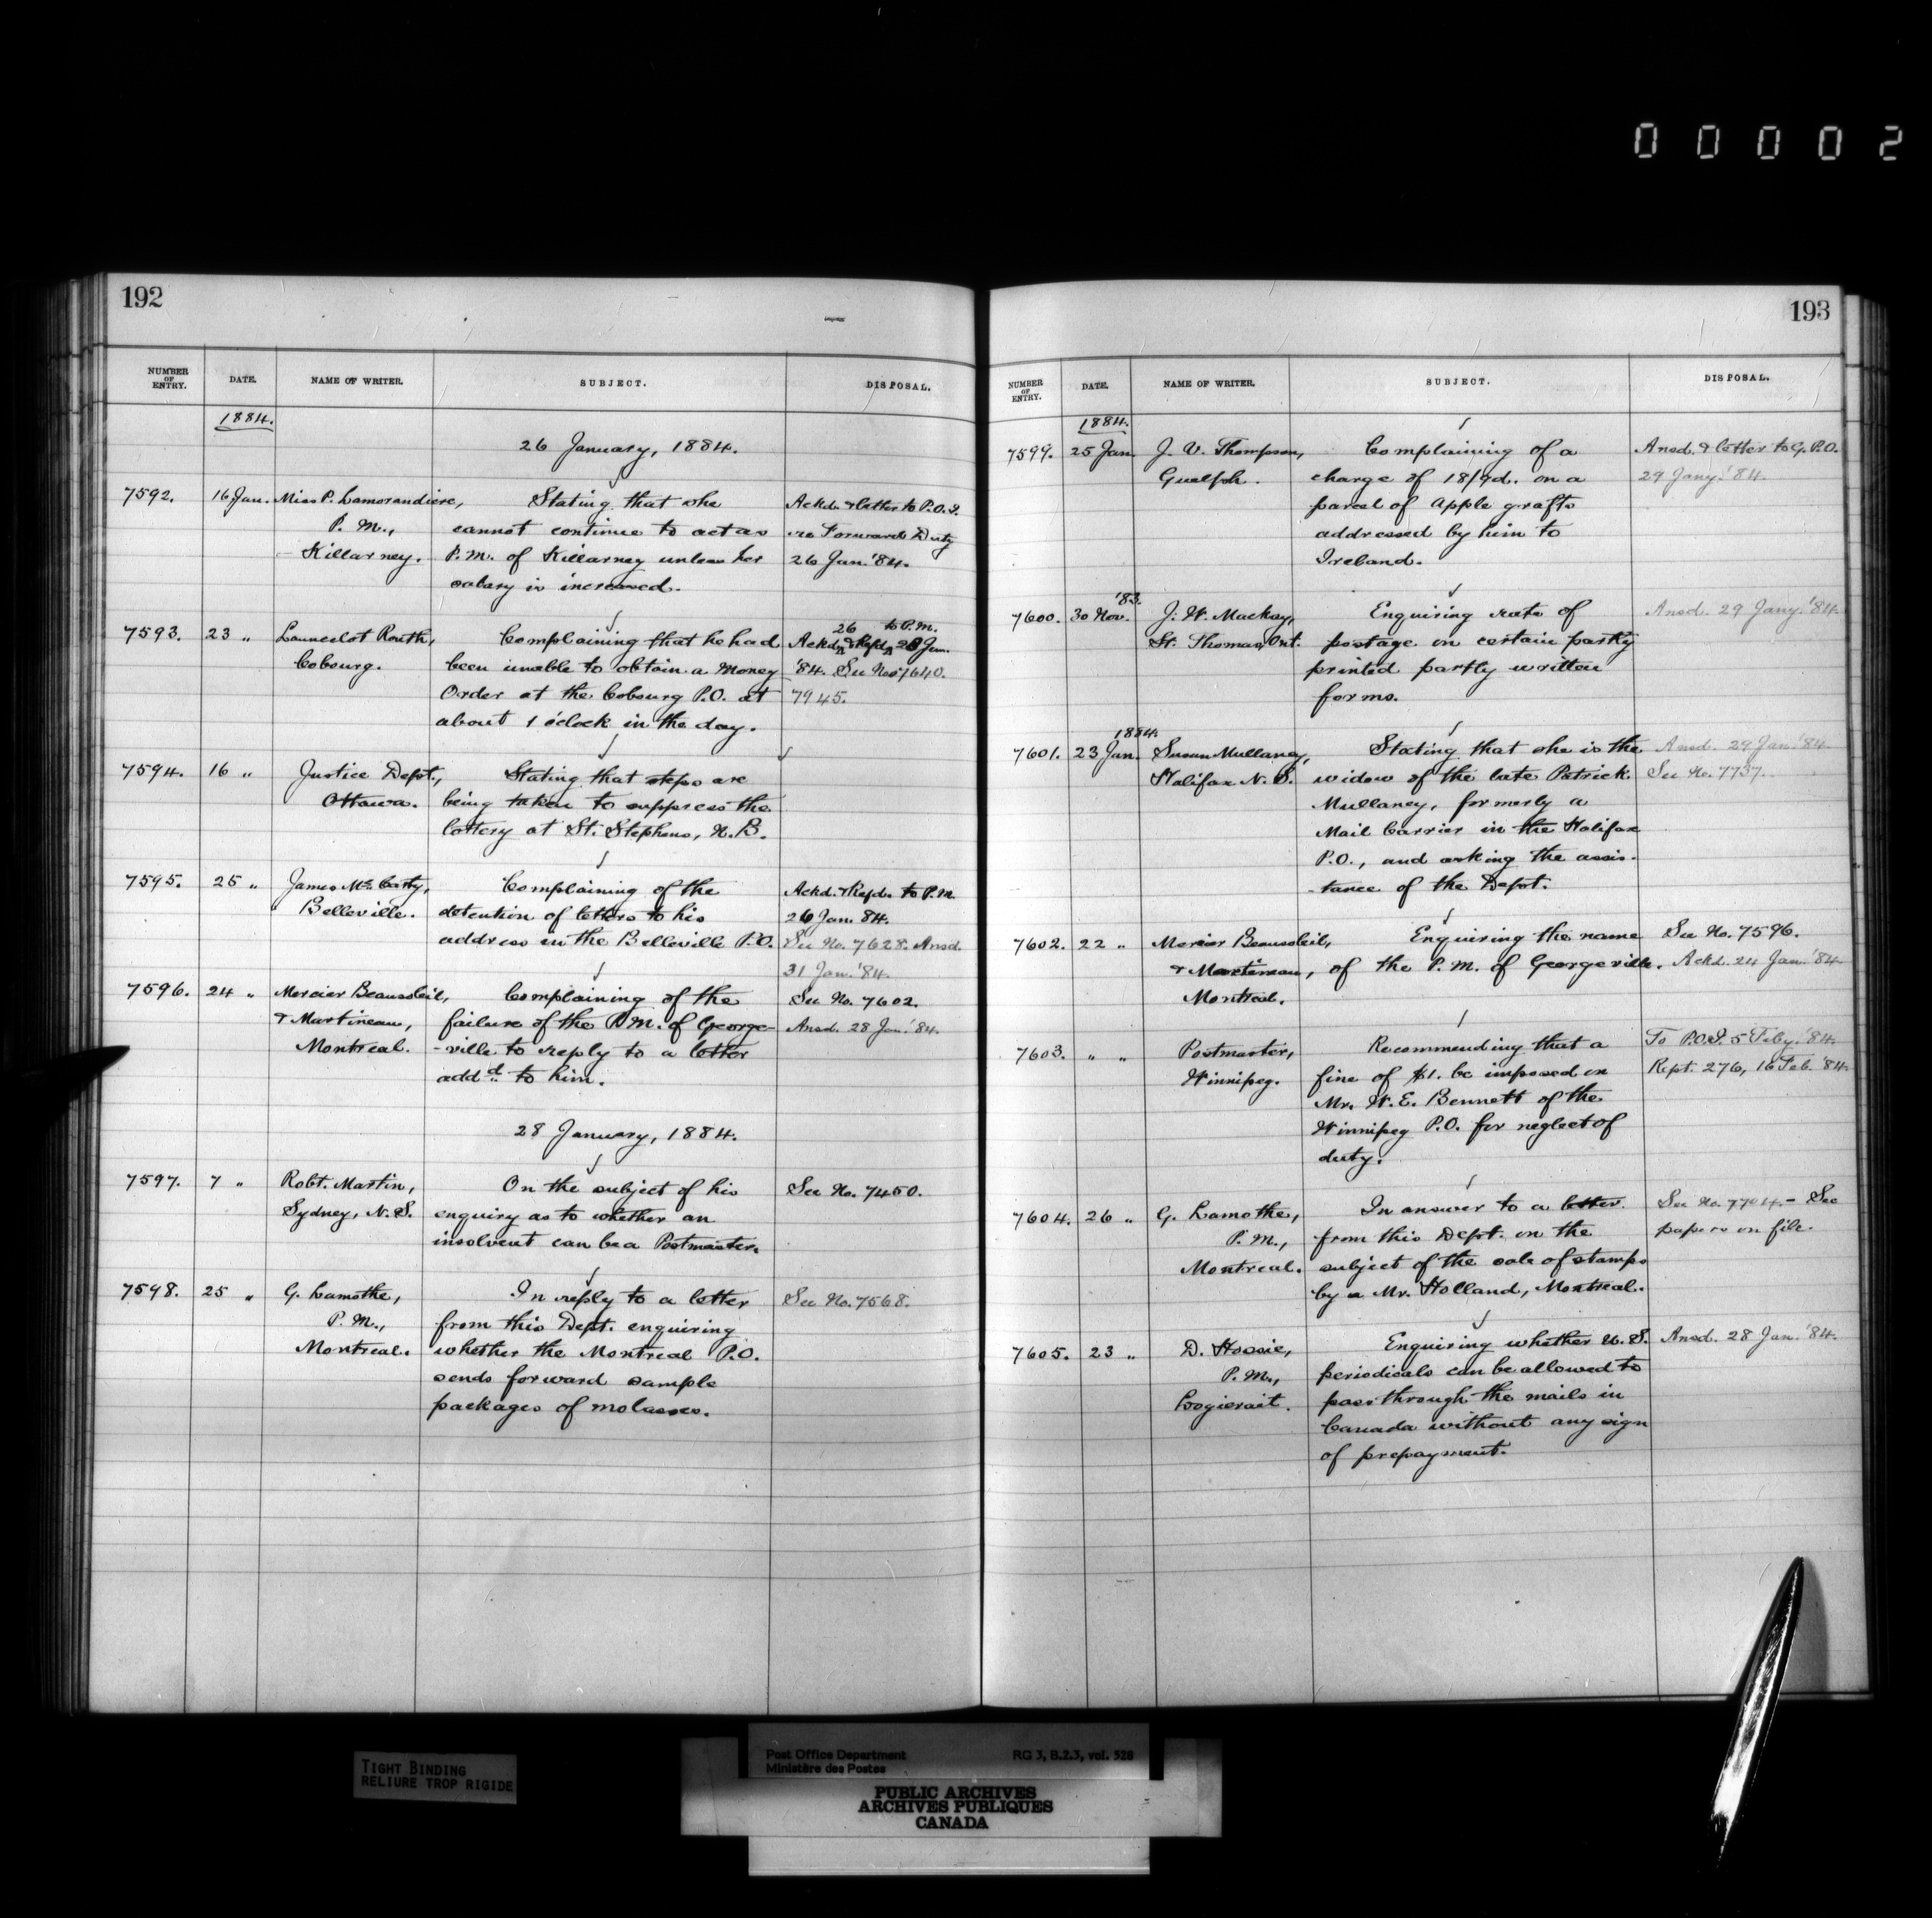 00002
192
NUMBER OF ENTRY. DATE. NAME OF WRITER. SUBJECT. DISPOSAL.
1884.
26 January, 1884.
7592. 16 Jan. Miss P. Lamorandiere, Stating that she Ackd. & letter to P.O.I.
P. M., cannot continue to act as re Forward Duty
Killarney. P.M. of Killarney unless her 26 Jan. '84.
salary is increased.
26 to P.M.
7593. 23 " Launcelot Routh, Complaining that he had Ackd. & Refd. 28 Jan.
Cobourg. been unable to obtain a Money '84. See Nos 7640.
Order at the Cobourg P.O. at 7945.
about 1 o'clock in the day.
7594. 16 " Justice Dept., Stating that steps are
Ottawa. being taken to suppress the
lottery at St. Stephens, N.B.
7595. 25 " James McCarty, Complaining of the Ackd. & Refd. to P.M.
Belleville. detention of letters to his 26 Jan. 84.
address in the Belleville P.O. See No. 7628. Ansd.
31 Jan. '84.
7596. 24 " Mercier Beausoleil, Complaining of the See No. 7602.
& Martineau, failure of the P.M. of George- Ansd. 28 Jan. '84.
Montreal. -ville to reply to a letter
addd. to him.
28 January, 1884.
7597. 7 " Robt. Martin, On the subject of his See No. 7450.
Sydney, N.S. enquiry as to whether an
insolvent can be a Postmaster.
7598. 25 " G. Lamothe, In reply to a letter See No. 7568.
P. M., from this Dept. enquiring
Montreal. whether the Montreal P.O.
sends forward sample
packages of molasses.
193
NUMBER OF ENTRY. DATE. NAME OF WRITER. SUBJECT. DISPOSAL.
1884.
7599. 25 Jan. J. V. Thompson, Complaining of a Ansd. & letter to G.P.O.
Guelph. charge of 18/9d. on a 29 Jany. '84.
parcel of Apple grafts
addressed by him to
Ireland.
'83.
7600. 30 Nov. J. W. Mackay, Enquiring rate of Ansd. 29 Jany. '84.
St. Thomas, Ont. postage on certain partly
printed partly written
forms.
1884.
7601. 23 Jan. Susan Mullaney, Stating that she is the Ansd. 29 Jan. '84.
Halifax N.S. widow of the late Patrick See No. 7737.
Mullaney, formerly a
Mail Carrier in the Halifax
P.O., and asking the assis-
-tance of the Dept.
7602. 22 " Mercier Beausoleil, Enquiring the name See No. 7596.
& Martineau, of the P.M. of Georgeville. Ackd. 24 Jan. '84
Montreal.
7603. " " Postmaster, Recommending that a To P.O.I. 5 Feby. '84.
Winnipeg. fine of $1. be imposed on Rept. 276, 16 Feb. '84.
Mr. W. E. Bennett of the
Winnipeg P.O. for neglect of
duty.
7604. 26 " G. Lamothe, In answer to a letter See No. 7704. - See
P. M., from this Dept. on the papers on file.
Montreal. subject of the sale of stamps
by a Mr. Holland, Montreal.
7605. 23 " D. Hossie, Enquiring whether U.S. Ansd. 28 Jan. '84.
P.M., periodicals can be allowed to
Logierait. pass through the mails in
Canada without any sign
of prepayment.
TIGHT BINDING
RELIURE TROP RIGIDE
Post Office Department RG 3, B.2.3, vol. 528
Ministère des Postes
PUBLIC ARCHIVES
ARCHIVES PUBLIQUES
CANADA